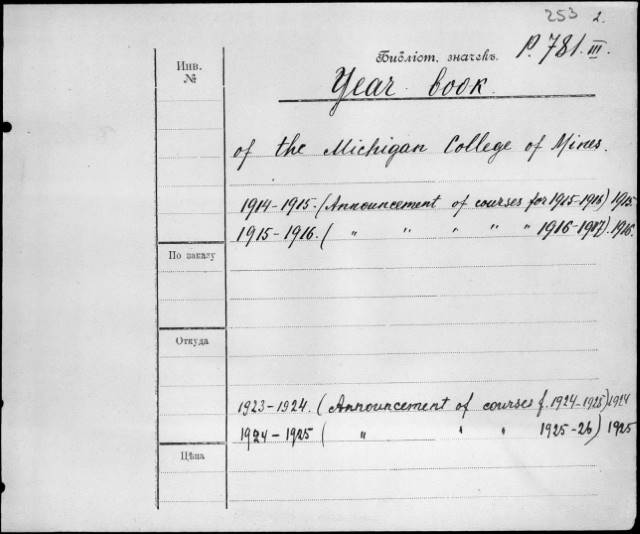 253 2.
Библіот. значекъ. P. 781. III.
Инв.
№
Year book.
of the Michigan College of Mines.
1914-1915. (Announcement of courses for 1915-1916) 1915.
1915-1916. ( " " " " " 1916-1917). 1916.
По заказу
Откуда
1923-1924. (Announcement of courses f. 1924-1925) 1924
1924-1925 ( " " " 1925-26) 1925
Цѣна